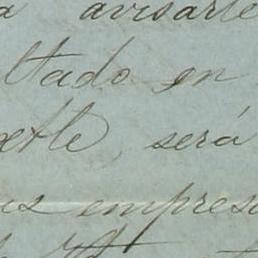 a avisarte
ltado en
extle, será
us empresa